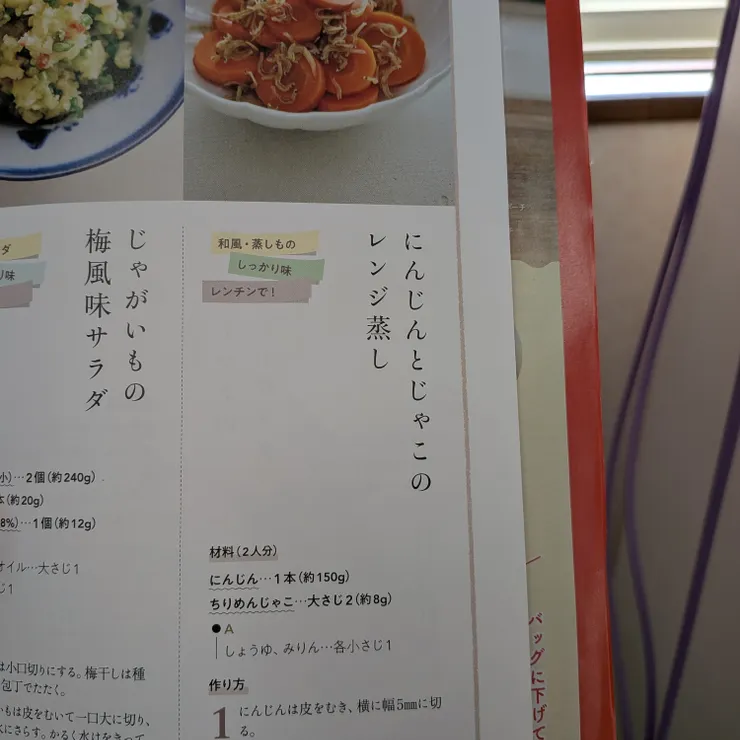 にんじんとじゃこの
レンジ蒸し
和風・蒸しもの
しっかり味
レンチンで！
材料（2人分）
にんじん…1本（約150g）
ちりめんじゃこ…大さじ2（約8g）
●A
しょうゆ、みりん…各小さじ1
作り方
1 にんじんは皮をむき、横に幅5mmに切
る。
じゃがいもの
梅風味サラダ
ダ
り味
小）…2個（約240g）
本（約20g）
8%）…1個（約12g）
オイル…大さじ1
じ1
は小口切りにする。梅干しは種
包丁でたたく。
いもは皮をむいて一口大に切り、
水にさらす。かるく水けをきって
バッグに下げて